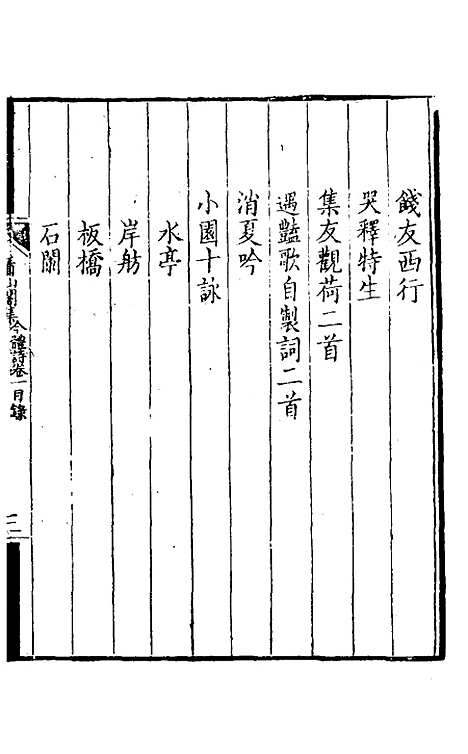 餞友西行
哭釋特生
集友觀荷二首
遇豔歌自製詞二首
消夏吟
小園十詠
水亭
岸舫
板橋
石闌
山閣集今體詩卷一目錄